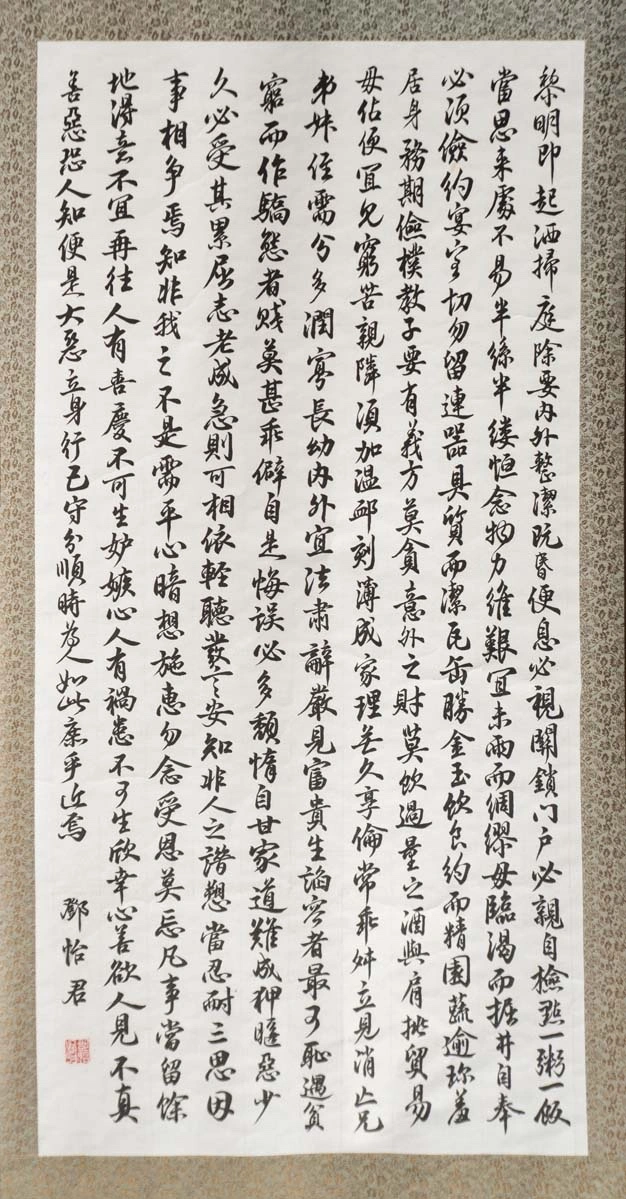 黎明即起洒掃庭除要内外整潔既昏便息必視關鎖门户必親自檢點一粥一飯
當思来處不易半絲半縷恒念物力維艱宜未雨而綢繆毋臨渴而掘井自奉
必須儉約宴客切勿留連器具質而潔瓦缶勝金玉飲食約而精園蔬逾珍羞
居身務期儉樸教子要有義方莫貪意外之財莫飲過量之酒與肩挑貿易
毋佔便宜見窮苦親隣須加温邺刻薄成家理無久享倫常乖舛立見消亡兄
弟妹侄需分多潤寡長幼内外宜法肅辭嚴見富貴生諂容者最可恥遇貧
窮而作驕態者賤莫甚乖僻自是悔誤必多頹惰自甘家道難成狎暱惡少
久必受其累屈志老成急則可相依輕聽發言安知非人之譖愬當忍耐三思因
事相争焉知非我之不是需平心暗想施惠勿念受恩莫忘凡事當留餘
地得意不宜再往人有喜慶不可生妒嫉心人有禍患不可生欣幸心善欲人見不真
善惡恐人知便是大惡立身行己守分順時為人如此庶乎近焉
鄧怡君